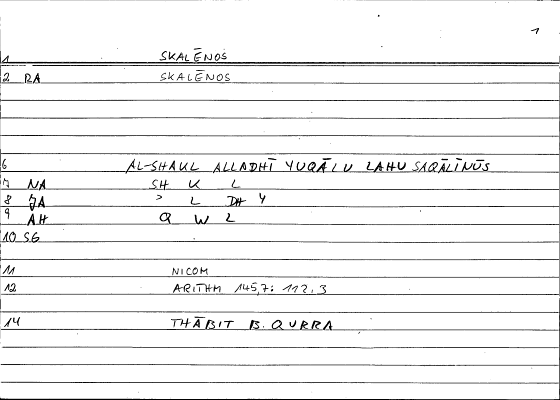 1
1 SKALĒNOS
2 RA SKALĒNOS
6 AL-SHAKL ALLADHĪ YUQĀLU LAHU SAQĀLĪNŪS
7 NA SH K L
8 JA ʾ L DH Y
9 AH Q W L
10 SG
11 NICOM
12 ARITHM 145,7: 112.3
14 THĀBIT B. QURRA